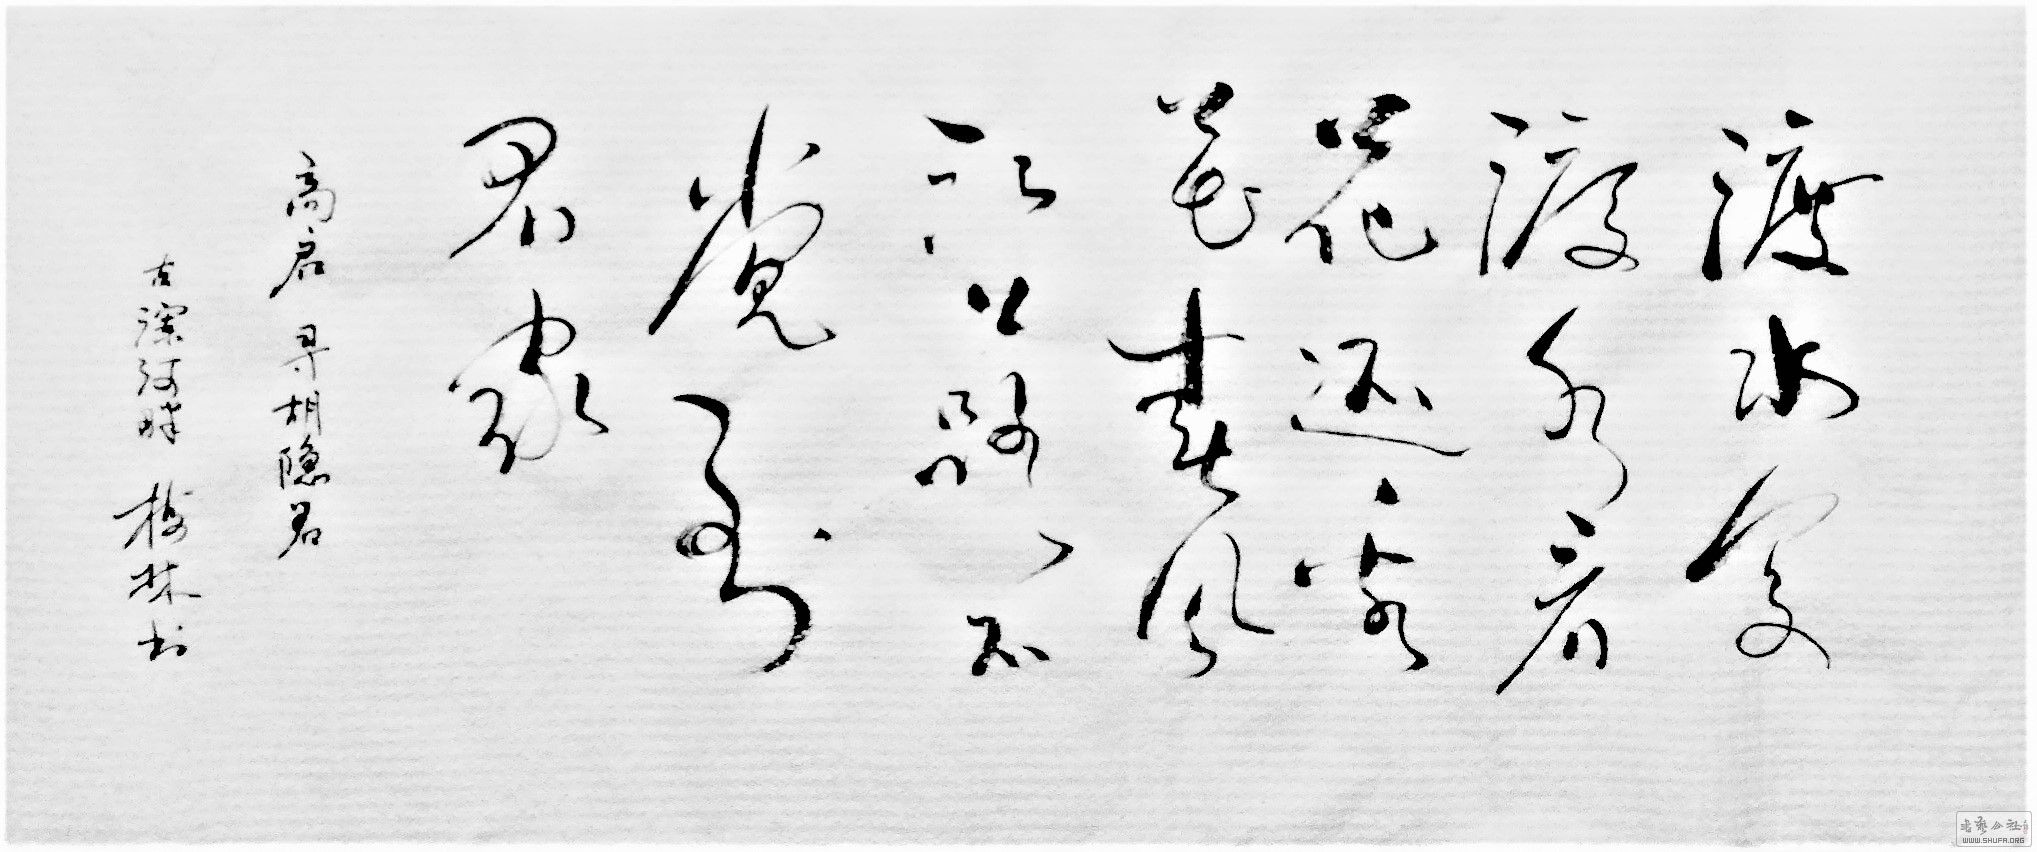 渡水复
渡水看
花还看
花春风
江上路不
觉到
君家
高启 寻胡隐君
古漯河畔 梅林书
书艺公社
WWW.SHUFA.ORG